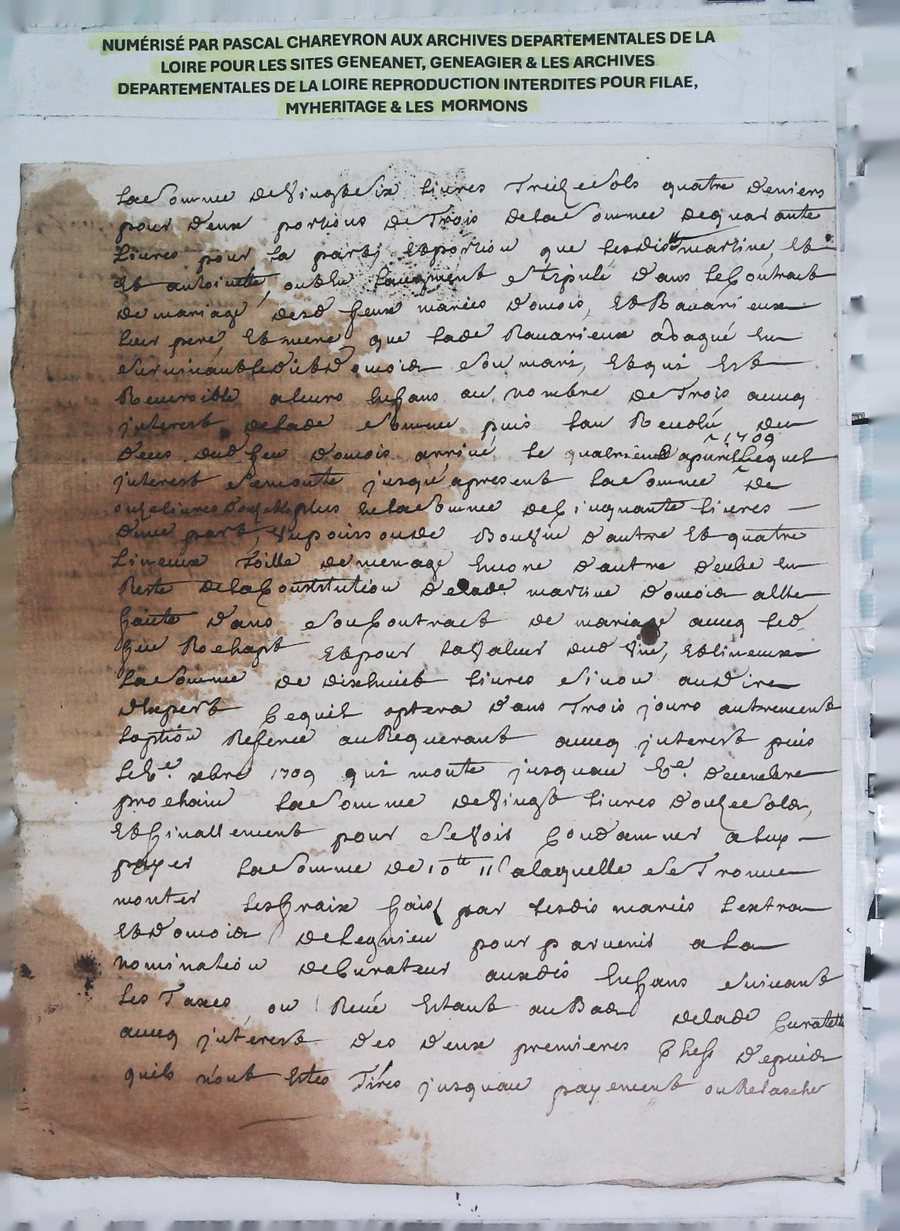 NUMÉRISÉ PAR PASCAL CHAREYRON AUX ARCHIVES DEPARTEMENTALES DE LA
LOIRE POUR LES SITES GENEANET, GENEAGIER & LES ARCHIVES
DEPARTEMENTALES DE LA LOIRE REPRODUCTION INTERDITES POUR FILAE,
MYHERITAGE & LES MORMONS
la somme de vingt six livres treize sols quatre deniers
pour deux portions de trois de la somme de quarante
livres pour la part et portion que lesdits martine, et
et antoinette, ont en laugment stipulé dans le contract
de mariage desd feux mariés domois, et Ravarieux
leur pere et mere que lade Ravarieux a gagné en
survivant ledit domois son mari, et qui est
Reversible a leurs enfans au nombre de trois avecq
interest de lade somme puis lan Revolu du
deces dud feu domois arrivé le quatrieme apvril 1709 lequel
interest se monte jusqu'a present la somme de
onze livres plus de la somme de cinquante livres
dune part, dautre et quatre
linceux toille de menage encore dautre deube en
Reste de la Constitution de lade martine domois
faite dans son Contract de mariage avecq led
feu Rochapt et pour la valeur dud vin, et linceux
la somme de dixhuict livres sinon au dire
dexpert ce quil optera dans trois jours autrement
loption Referée au Requerant avecq interest puis
le xbre 1709 qui monte jusquau decembre
prochain la somme de vingt livres douze sols,
et finallement pour se voir condamner a luy
payer la somme de 10tt 11s a laquelle se trouve
monter les fraix faits par lesdis mariés Lextra
et domois de Legnieu pour parvenir a la
nomination de Curateur ausdis enfans suivant
les taxes, ou Recu estant au Bas de lade Curatelle
avecq interest des deux premieres chefs depuis
quils sont estes tirés jusquau payement ou Relascher